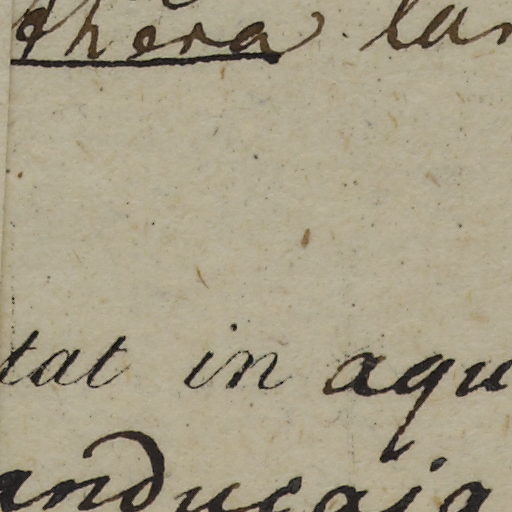 thera lar
tat in aqu
anducaia